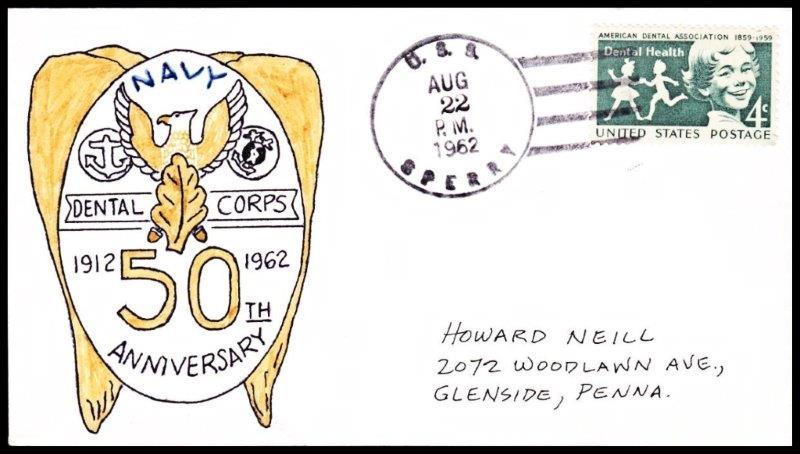 NAVY
DENTAL CORPS
1912 50TH 1962
ANNIVERSARY
U.S.S.
AUG
22
P.M.
1962
SPERRY
AMERICAN DENTAL ASSOCIATION 1859-1959
Dental Health
4¢
UNITED STATES POSTAGE
HOWARD NEILL
2072 WOODLAWN AVE.,
GLENSIDE, PENNA.